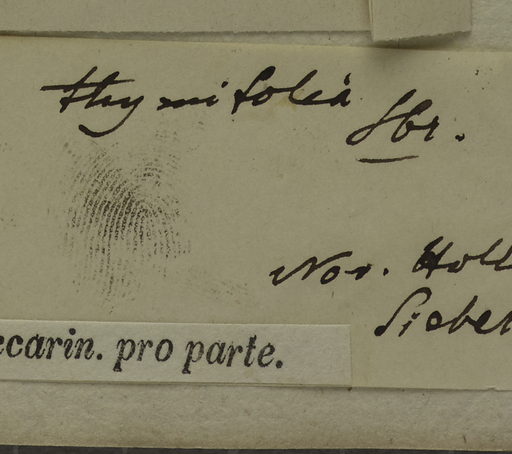 thymifolia
Sbr.
Nov. Holl
Sieber
ccarin. pro parte.